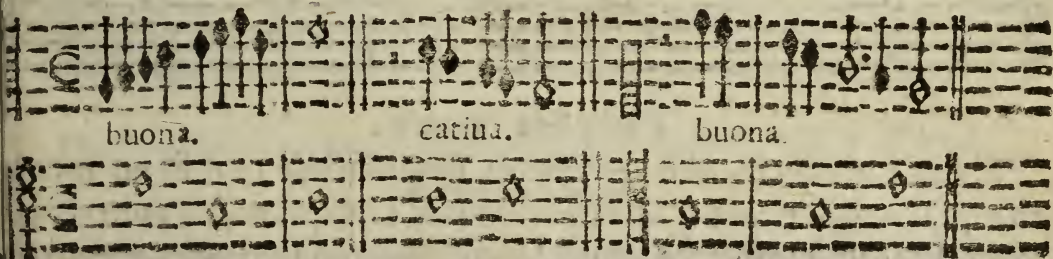 buona. catiua. buona.